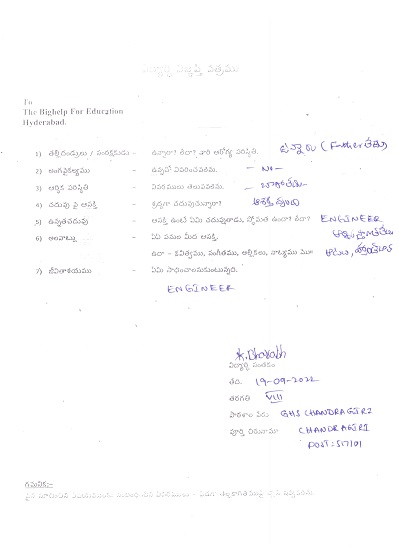 విద్యార్థి విజ్ఞప్తి పత్రము
To
The Bighelp For Education
Hyderabad.
1) తల్లిదండ్రులు / సంరక్షకుడు - ఉన్నారా? లేరా? వారి ఆరోగ్య పరిస్థితి. ఉన్నారు (Father లేరు)
2) అంగవైకల్యము - ఉన్నచో వివరించవలెను. - NO -
3) ఆర్థిక పరిస్థితి - వివరములు తెలుపవలెను. - బాగాలేదు -
4) చదువు పై ఆసక్తి - శ్రద్ధగా చదువుచున్నారా? ఆసక్తి వుంది
5) ఉన్నతచదువు - ఆసక్తి ఉంటే ఏమి చదువుతాడు, స్తోమత ఉందా? లేదా? ENGINEER
6) అలవాట్లు - ఏఏ పనుల మీద ఆసక్తి.
ఉదా - కవిత్వము, సంగీతము, అల్లికలు, నాట్యము ఆటలు,
7) జీవితాశయము - ఏమి సాధించాలనుకుంటున్నది.
ENGINEER
విద్యార్థి సంతకం
తేది. 19-09-2022
తరగతి VIII
పాఠశాల పేరు GHS CHANDRAGIRI
పూర్తి చిరునామా CHANDRAGIRI
POST: 517101
గమనిక:-